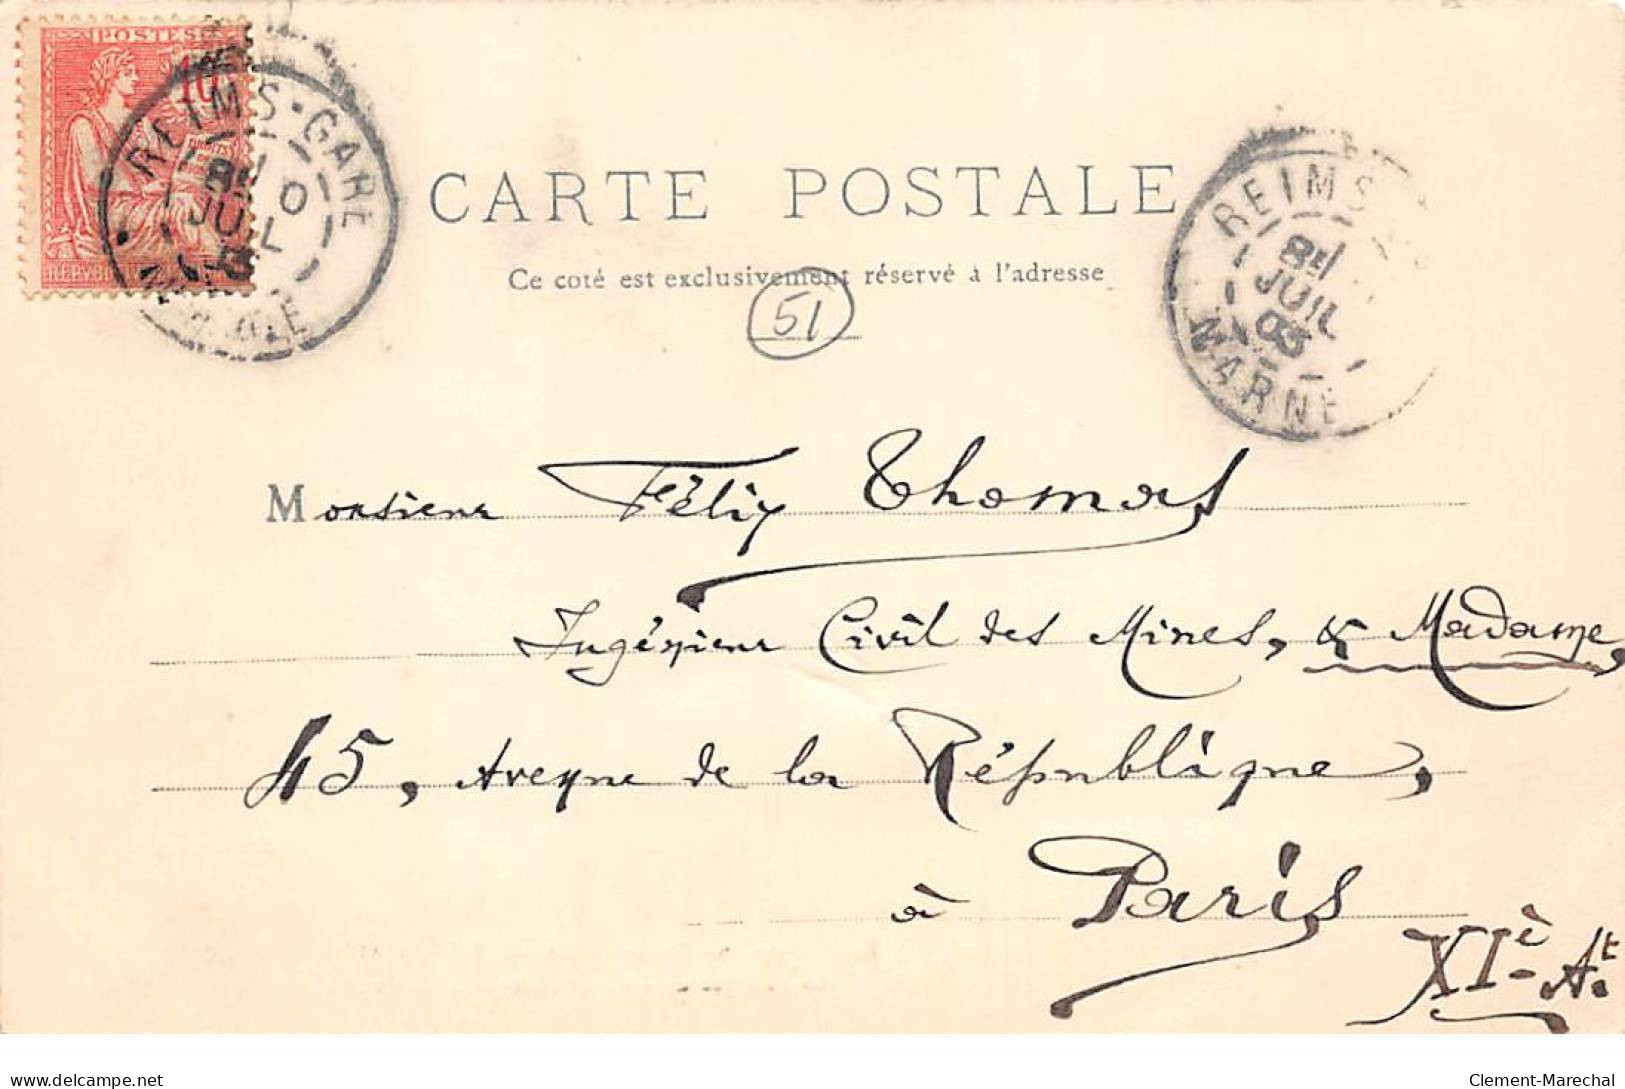 POSTES
10
REIMS·GARE
JUIL
MARNE
REIMS
JUIL
03
MARNE
CARTE POSTALE
Ce coté est exclusivement réservé à l'adresse
51
Monsieur Félix Thomas
Ingénieur Civil des Mines, & Madame,
45, Avenue de la République,
à Paris
XIè At.
delcampe.net
Clement-Marechal